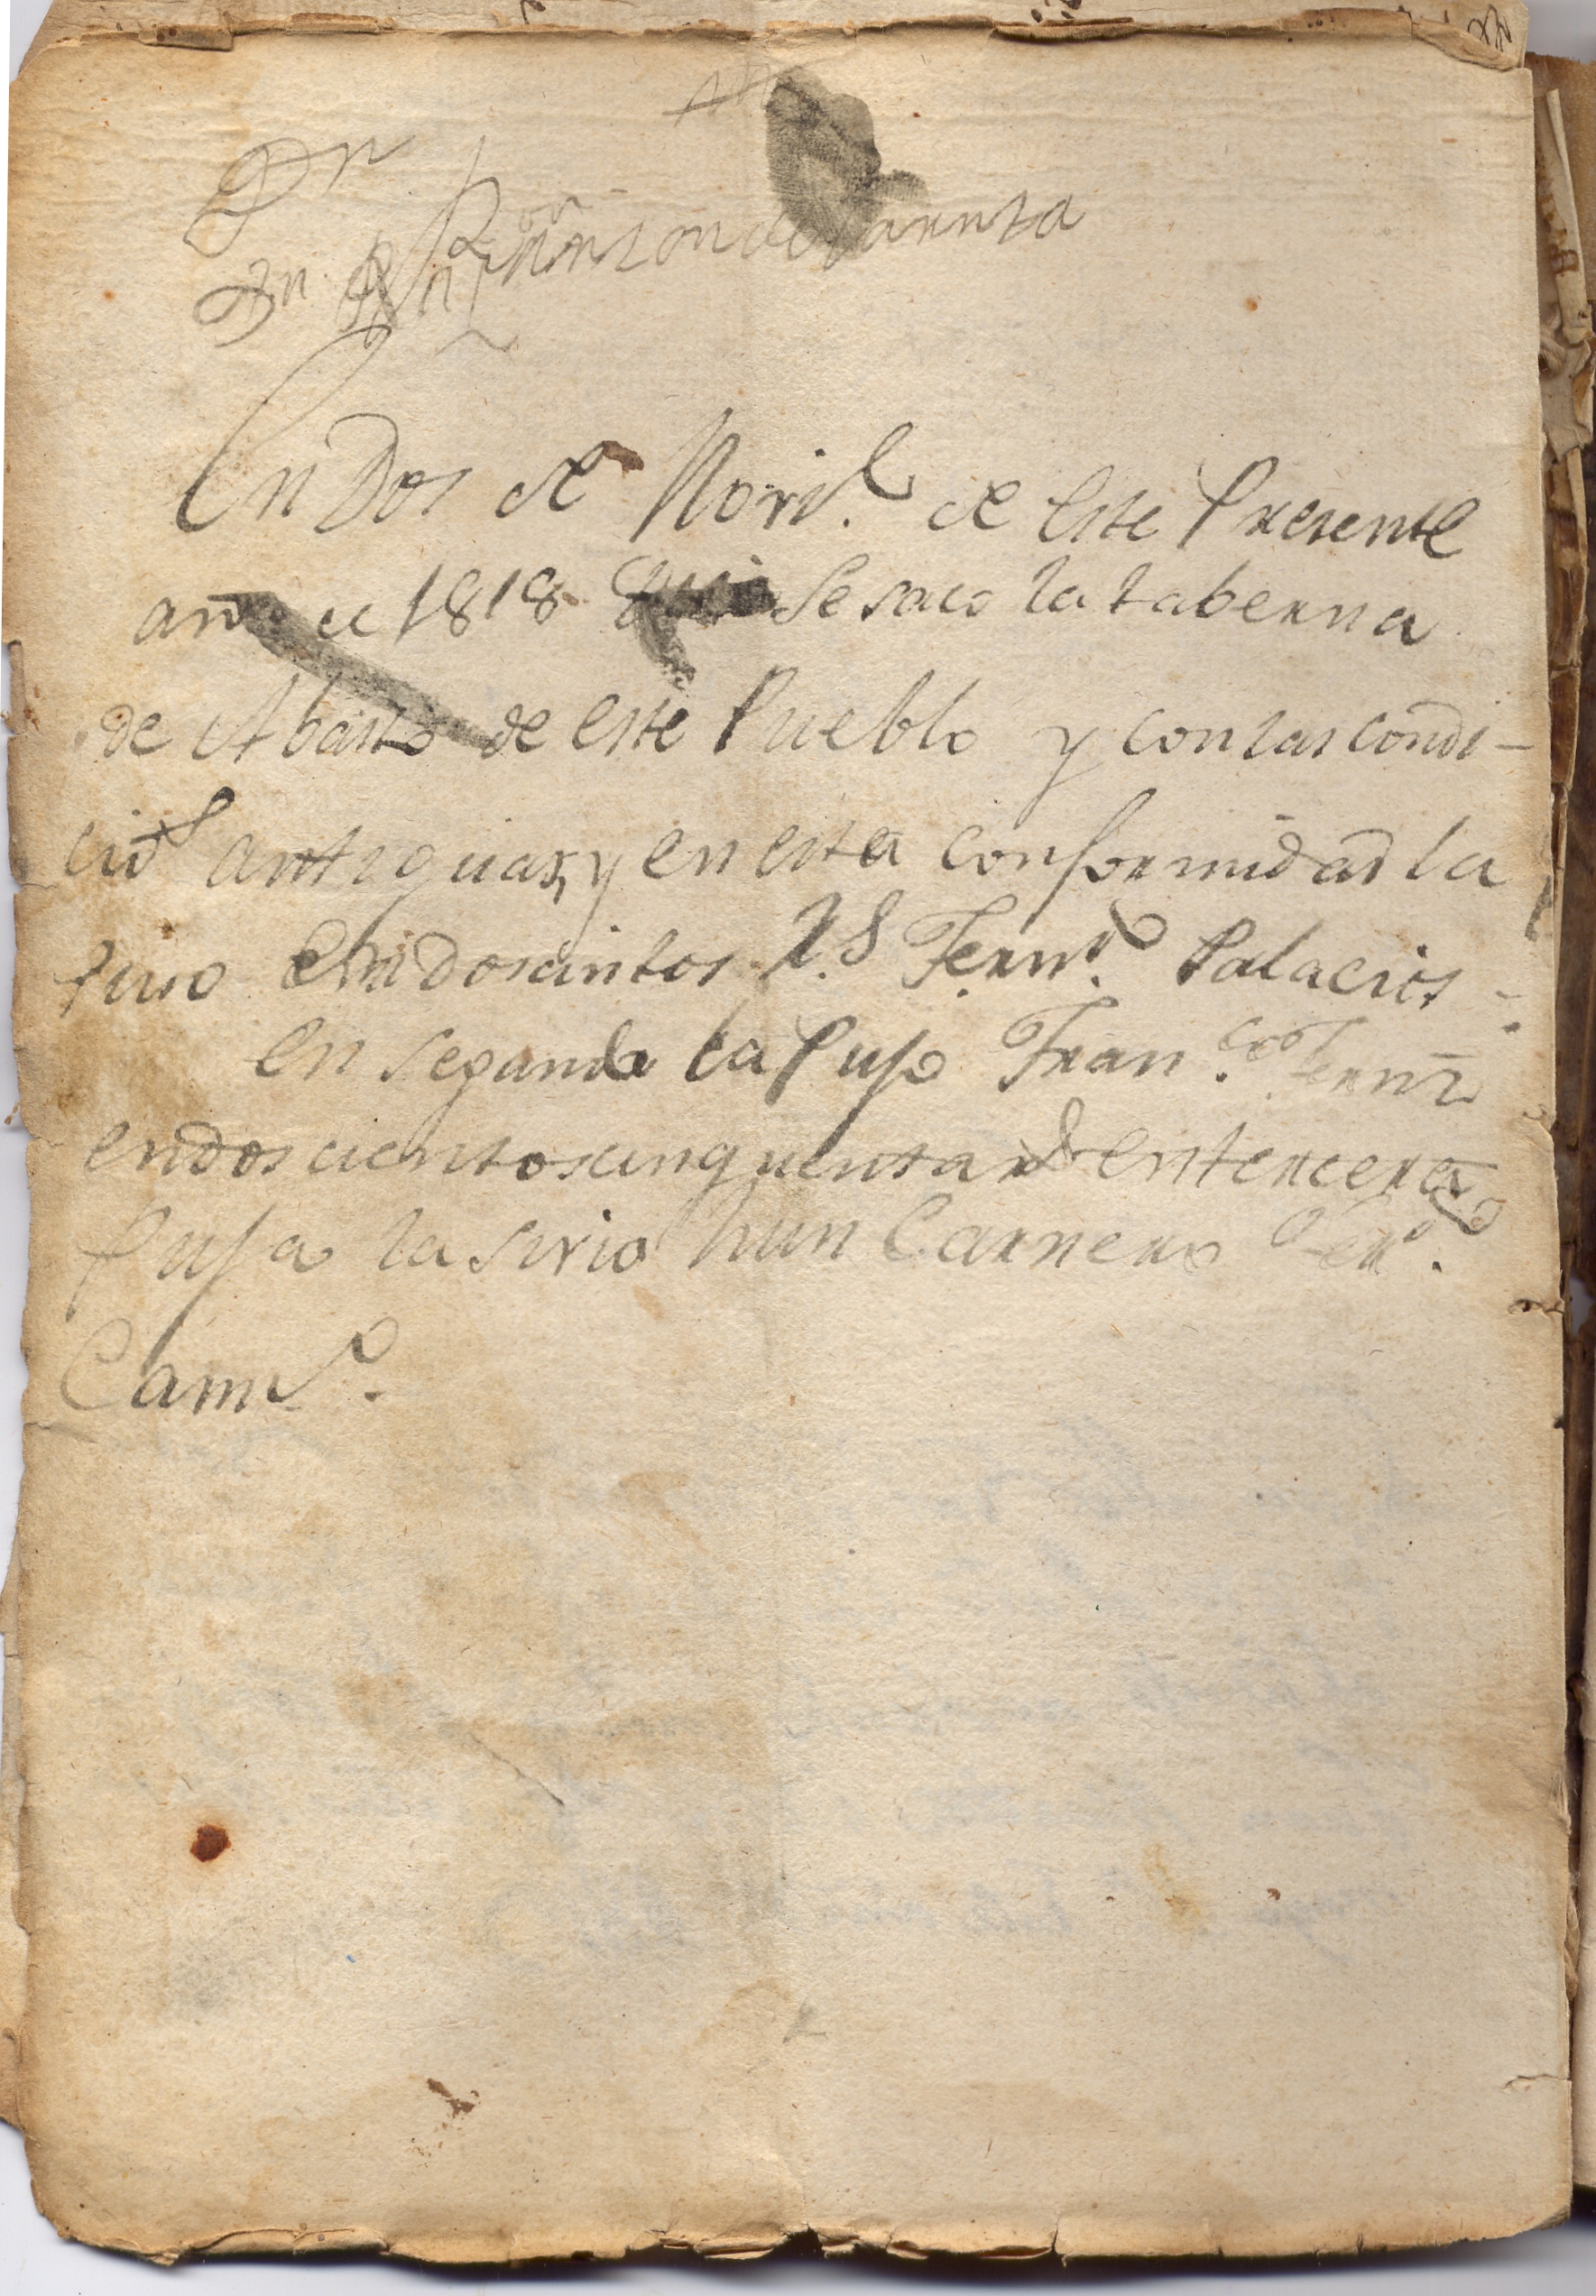 Dn
En Dos de Novi.e de este Presente
año de 1818 Se saco la taberna
de Abasto de este Pueblo y con las condi-
cio.s antiguas, y en esta conformidad la
puso en doscientos r.s Fern.do Palacios
en segunda la Puso Fran.co Fernz
en dos cientos cinquenta rs en tercera
Puja la sirio hun Carnero Fer.do
Cam.o